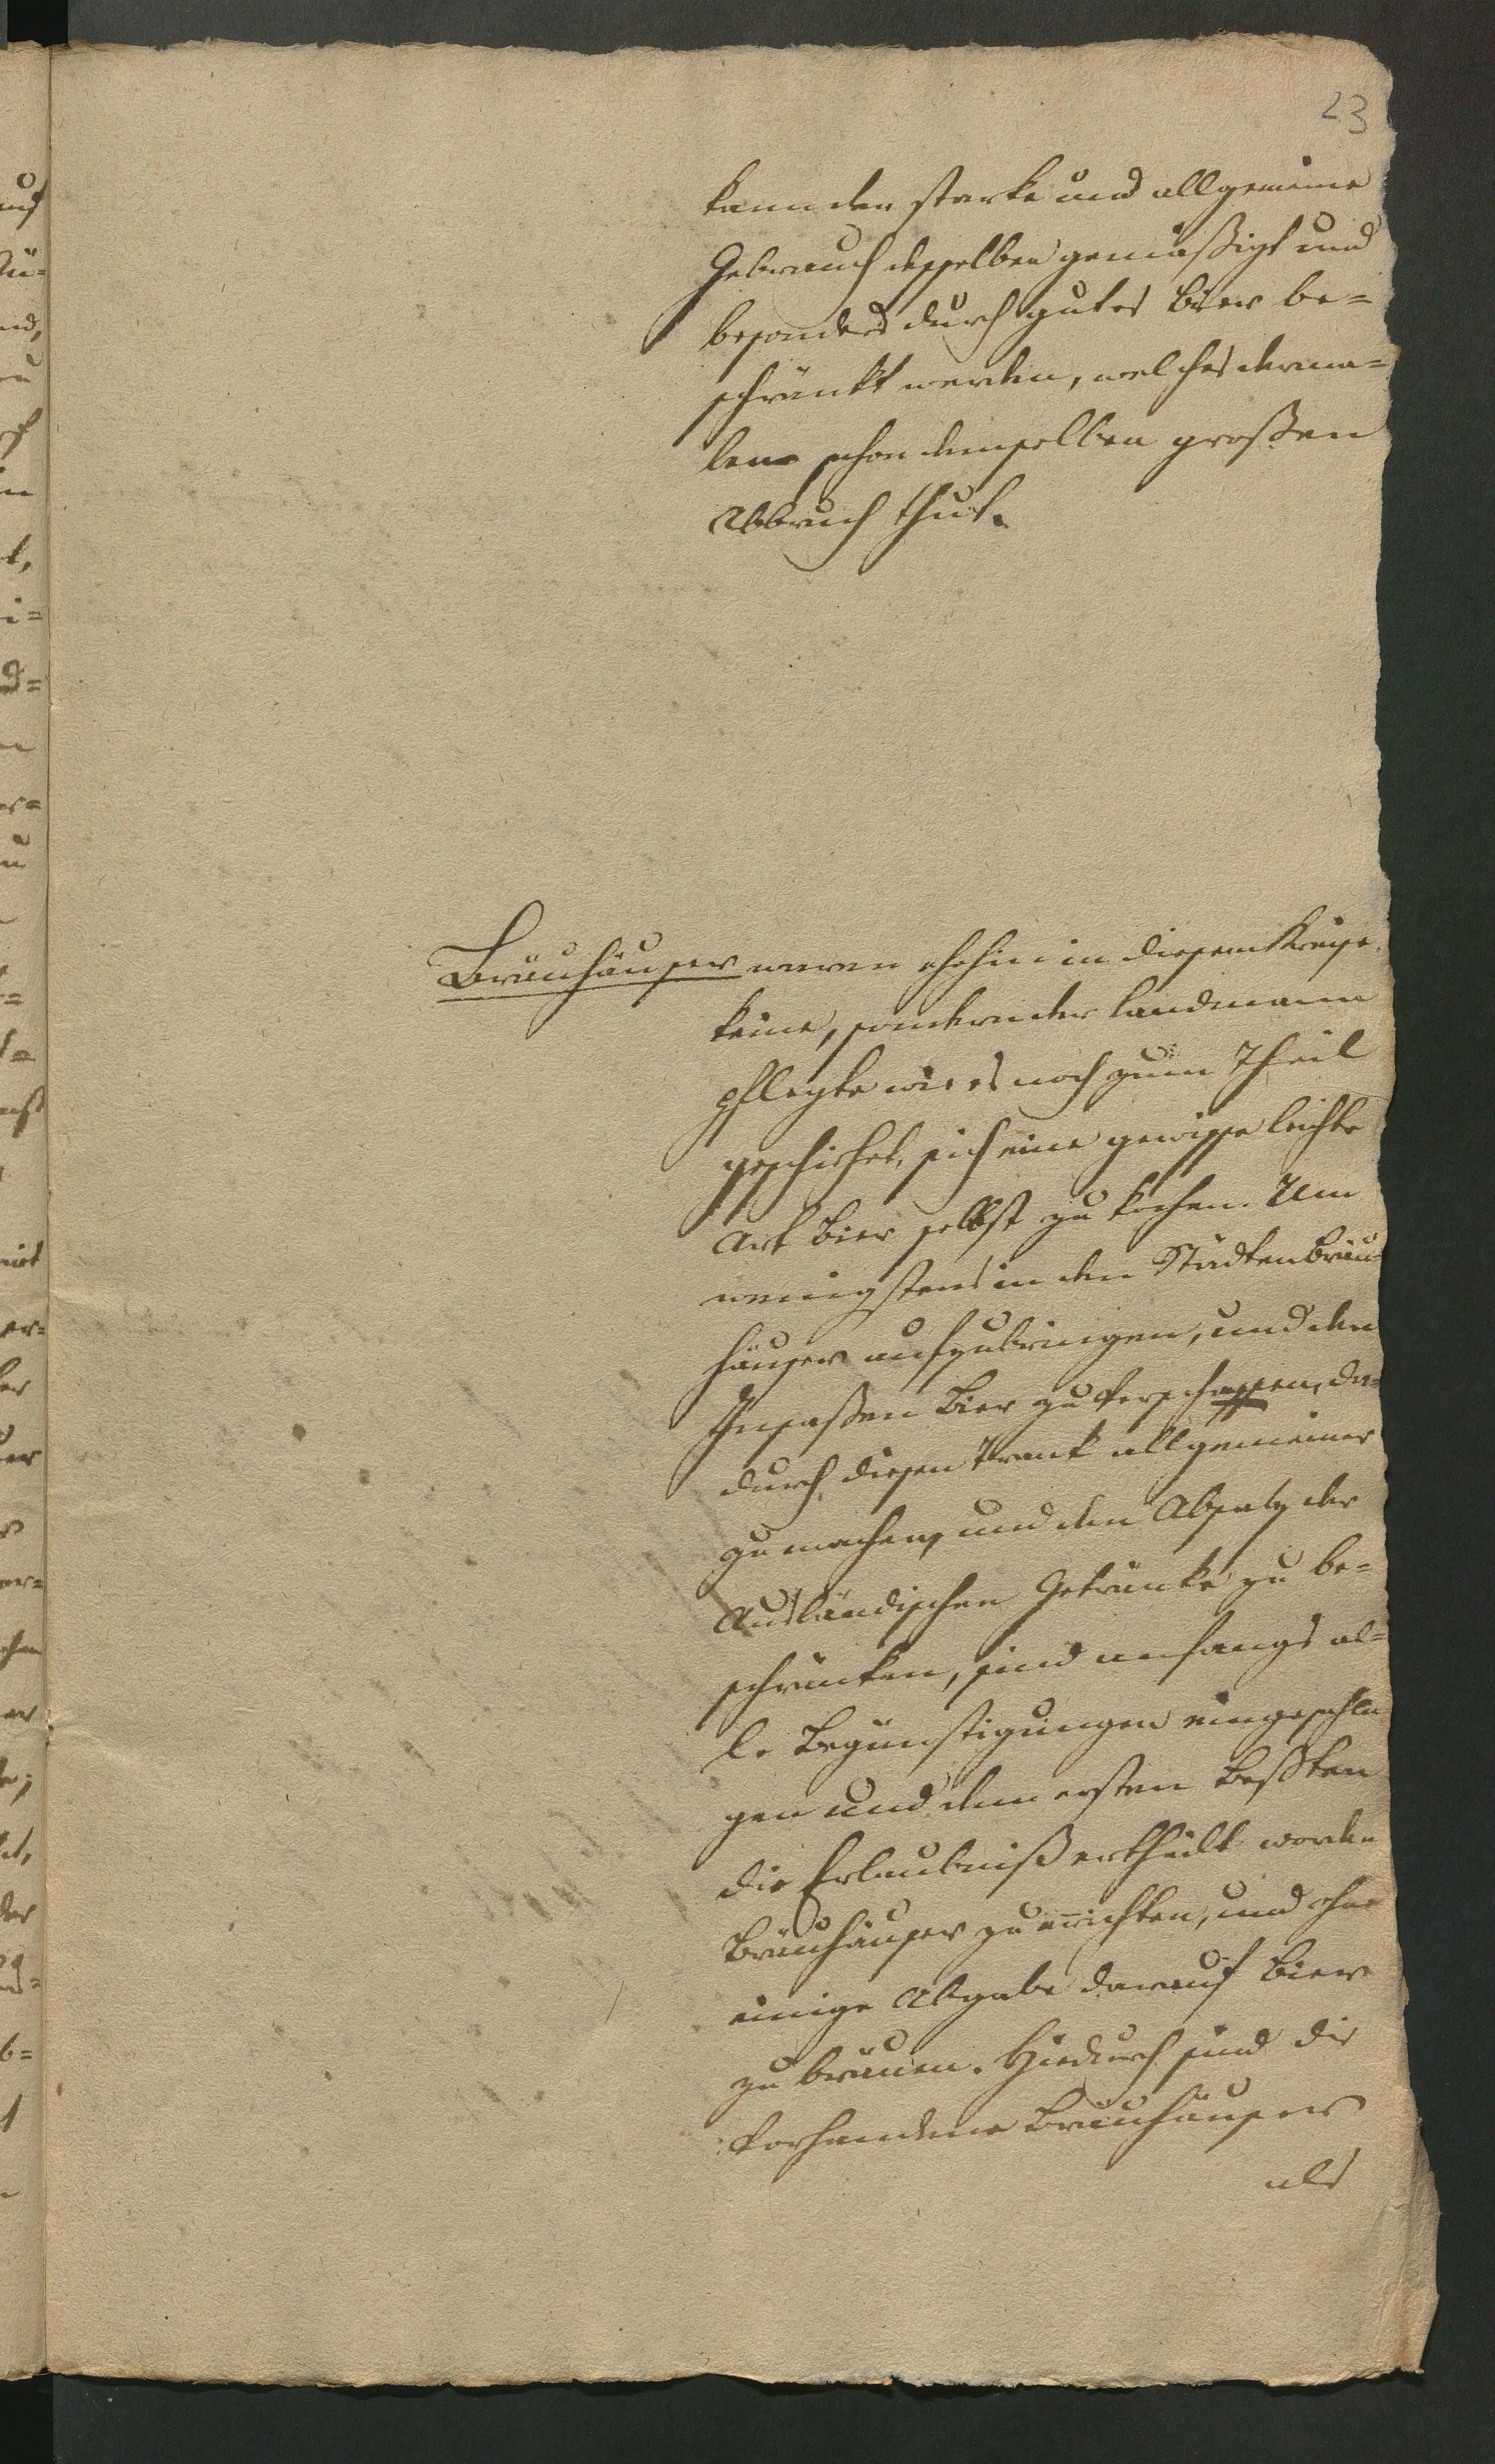 23
kann der starke und allgemeine
Gebrauch desselben gemäßigt und
besonders durch gutes Bier be=
schränkt werden, welches derma=
len schon demselben großen
Abbruch thut.
Bräuhäuser waren ehehin in diesem Kreise
keine, sondern der Landmann
pflegte wie es noch zum Theil
geschiehet, sich eine gewisse leichte
Art Bier selbst zu kochen. Um
wenigstens in den Städten Bräu=
häuser aufzubringen, und den
Insaßen Bier zu verschaffen, da=
durch diesen Trank allgemeiner
zu machen, und den Absatz der
Ausländischen Getränke zu be=
schränken, sind anfangs al=
le Begünstigungen eingeschla
gen und dem ersten Beßten
die Erlaubniß ertheilt worden
Bräuhäuser zu errichten, und ohne
einige Abgabe darauf Bier
zu bräuen. Hiedurch sind die
vorhandene Bräuhäuser
als